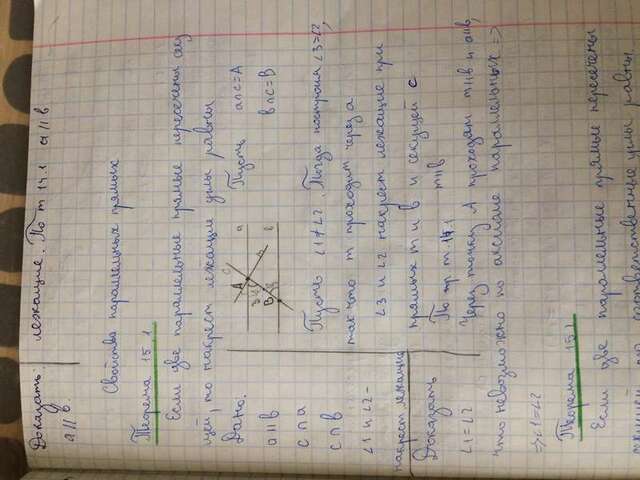 Доказать: лежащие. По т 14.1 a || b
a || b.
Свойства параллельных прямых
Теорема 15.1
Если две параллельные прямые пересечены секу
щей, то накрест лежащие углы равны
Дано: Пусть a∩c=A
a || b b∩c=B
c∩a
c∩b Пусть ∠1≠∠2. Тогда построим ∠3=∠2,
∠1 и ∠2 - так что m проходит через a
накрест лежащие ∠3 и ∠2 накрест лежащие при
Доказать прямых m и b и секущей c
∠1=∠2 По пр. т. 14.1 m || b
Через точку A проходят m || b и a || b,
что невозможно по аксиоме параллельных =>
=> ∠1=∠2
Теорема 15.1
Если две параллельные прямые пересечены
секущей, то соответственные углы равны